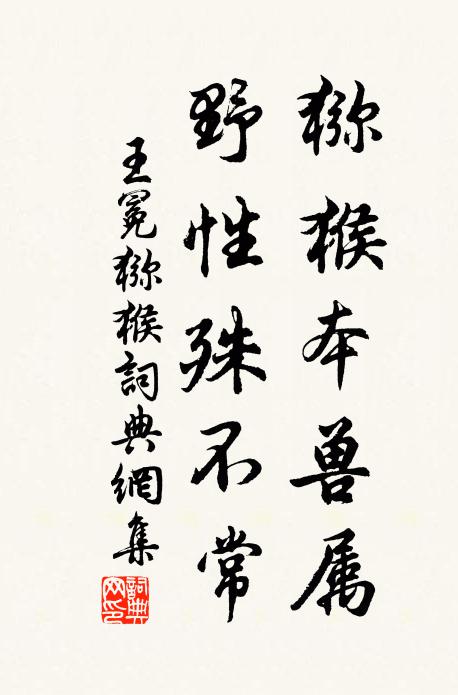 猕猴本兽属
野性殊不常
王冕猕猴詞典網集
詞典网印